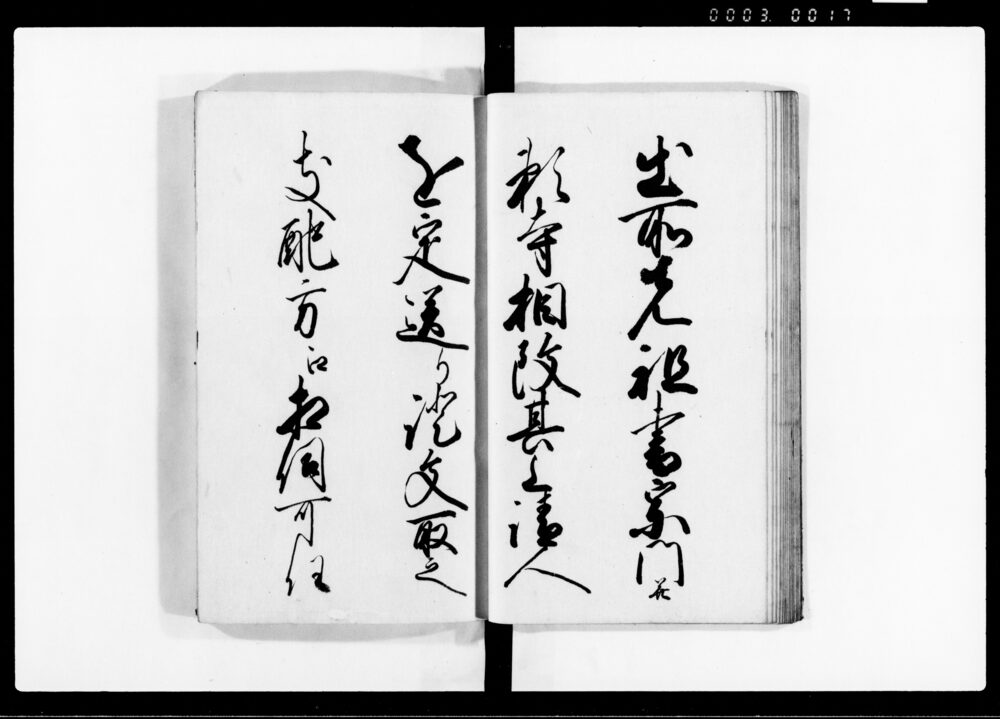 0003. 0017
出所先祖書宗門并
頼寺相改其上請人
を定送り証文取之
支配方江相伺可任